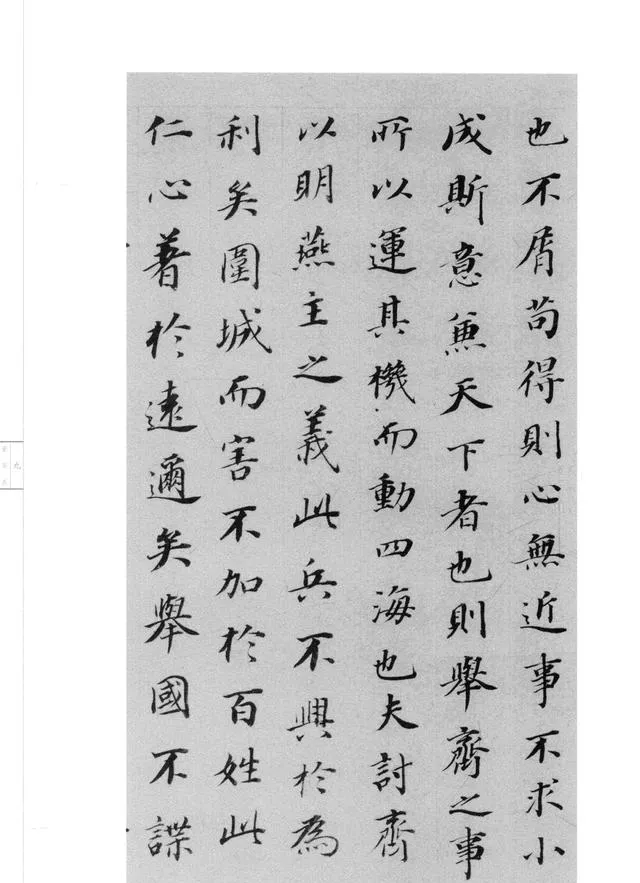 也不屑苟得則心無近事不求小
成斯意兼天下者也則舉齊之事
所以運其機而動四海也夫討齊
以明燕主之義此兵不興於為
利矣圍城而害不加於百姓此
仁心著於遠邇矣舉國不謀
九